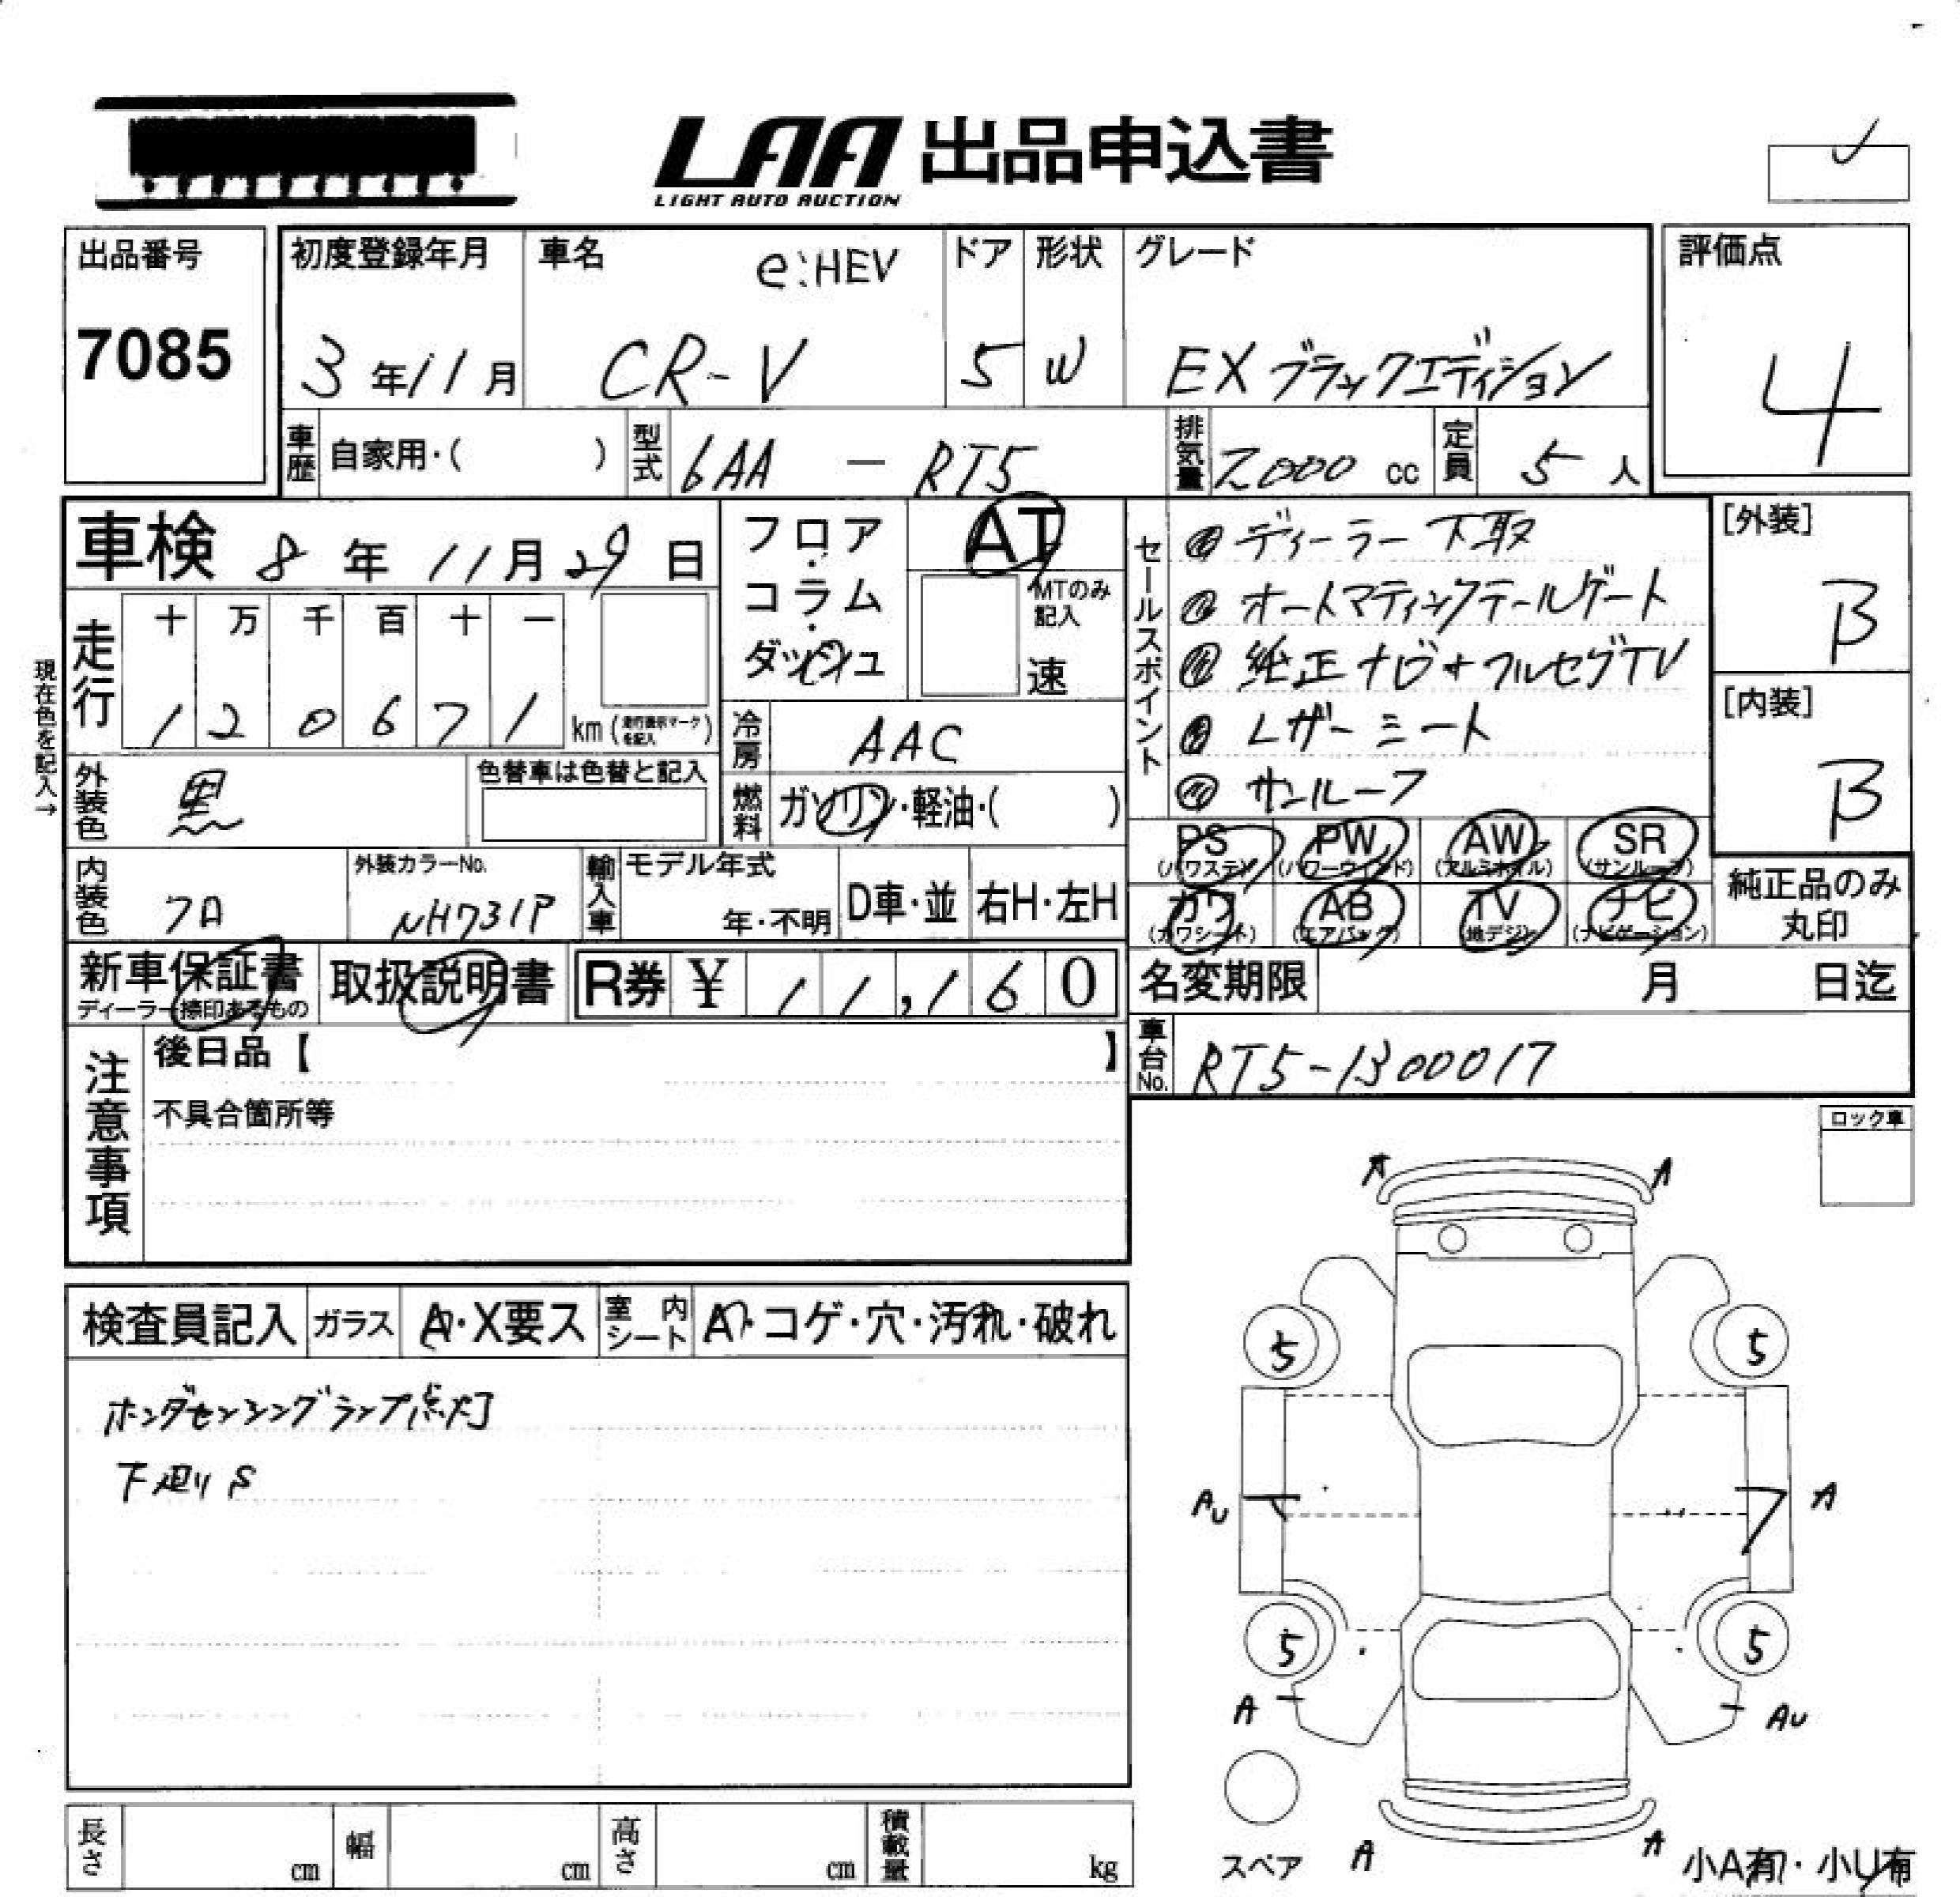 LAA 出品申込書
LIGHT AUTO AUCTION
出品番号
7085
初度登録年月
3年11月
車名
e:HEV
CR-V
ドア
5
形状
W
グレード
EX ブラックエディション
評価点
4
車歴 自家用・( )
型式 6AA - RT5
排気量 2000 cc
定員 5 人
車検 8年11月29日
フロア・コラム・ダッシュ
AT
MTのみ記入
速
セールスポイント
ディーラー下取
オートマティックテールゲート
純正ナビ+フルセグTV
レザーシート
サンルーフ
[外装]
B
[内装]
B
現在色を記入→
走行
十 万 千 百 十 一
1 2 0 6 7 1
km (走行表示マークを記入)
冷房 AAC
燃料 ガソリン・軽油・( )
外装色 黒
色替車は色替と記入
内装色 7A
外装カラーNo.
NH731P
輸入車
モデル年式
年・不明
D車・並
右H・左H
PS (パワステ)
PW (パワーウィンド)
AW (アルミホイル)
SR (サンルーフ)
カワ (カワシート)
AB (エアバック)
TV (地デジ)
ナビ (ナビゲーション)
純正品のみ
丸印
新車保証書
ディーラー捺印あるもの
取扱説明書
R券 ¥ 11,160
名変期限 月 日迄
車台No. RT5-1300017
注意事項
後日品【 】
不具合箇所等
ロック車
検査員記入
ガラス A・X要ス
室内シート A・コゲ・穴・汚れ・破れ
ホンダセンシングランプ点灯
下廻りS
A A
5 5
AU A
5 5
A AU
A A
スペア
小A有・小U有
長さ cm
幅 cm
高さ cm
積載量 kg